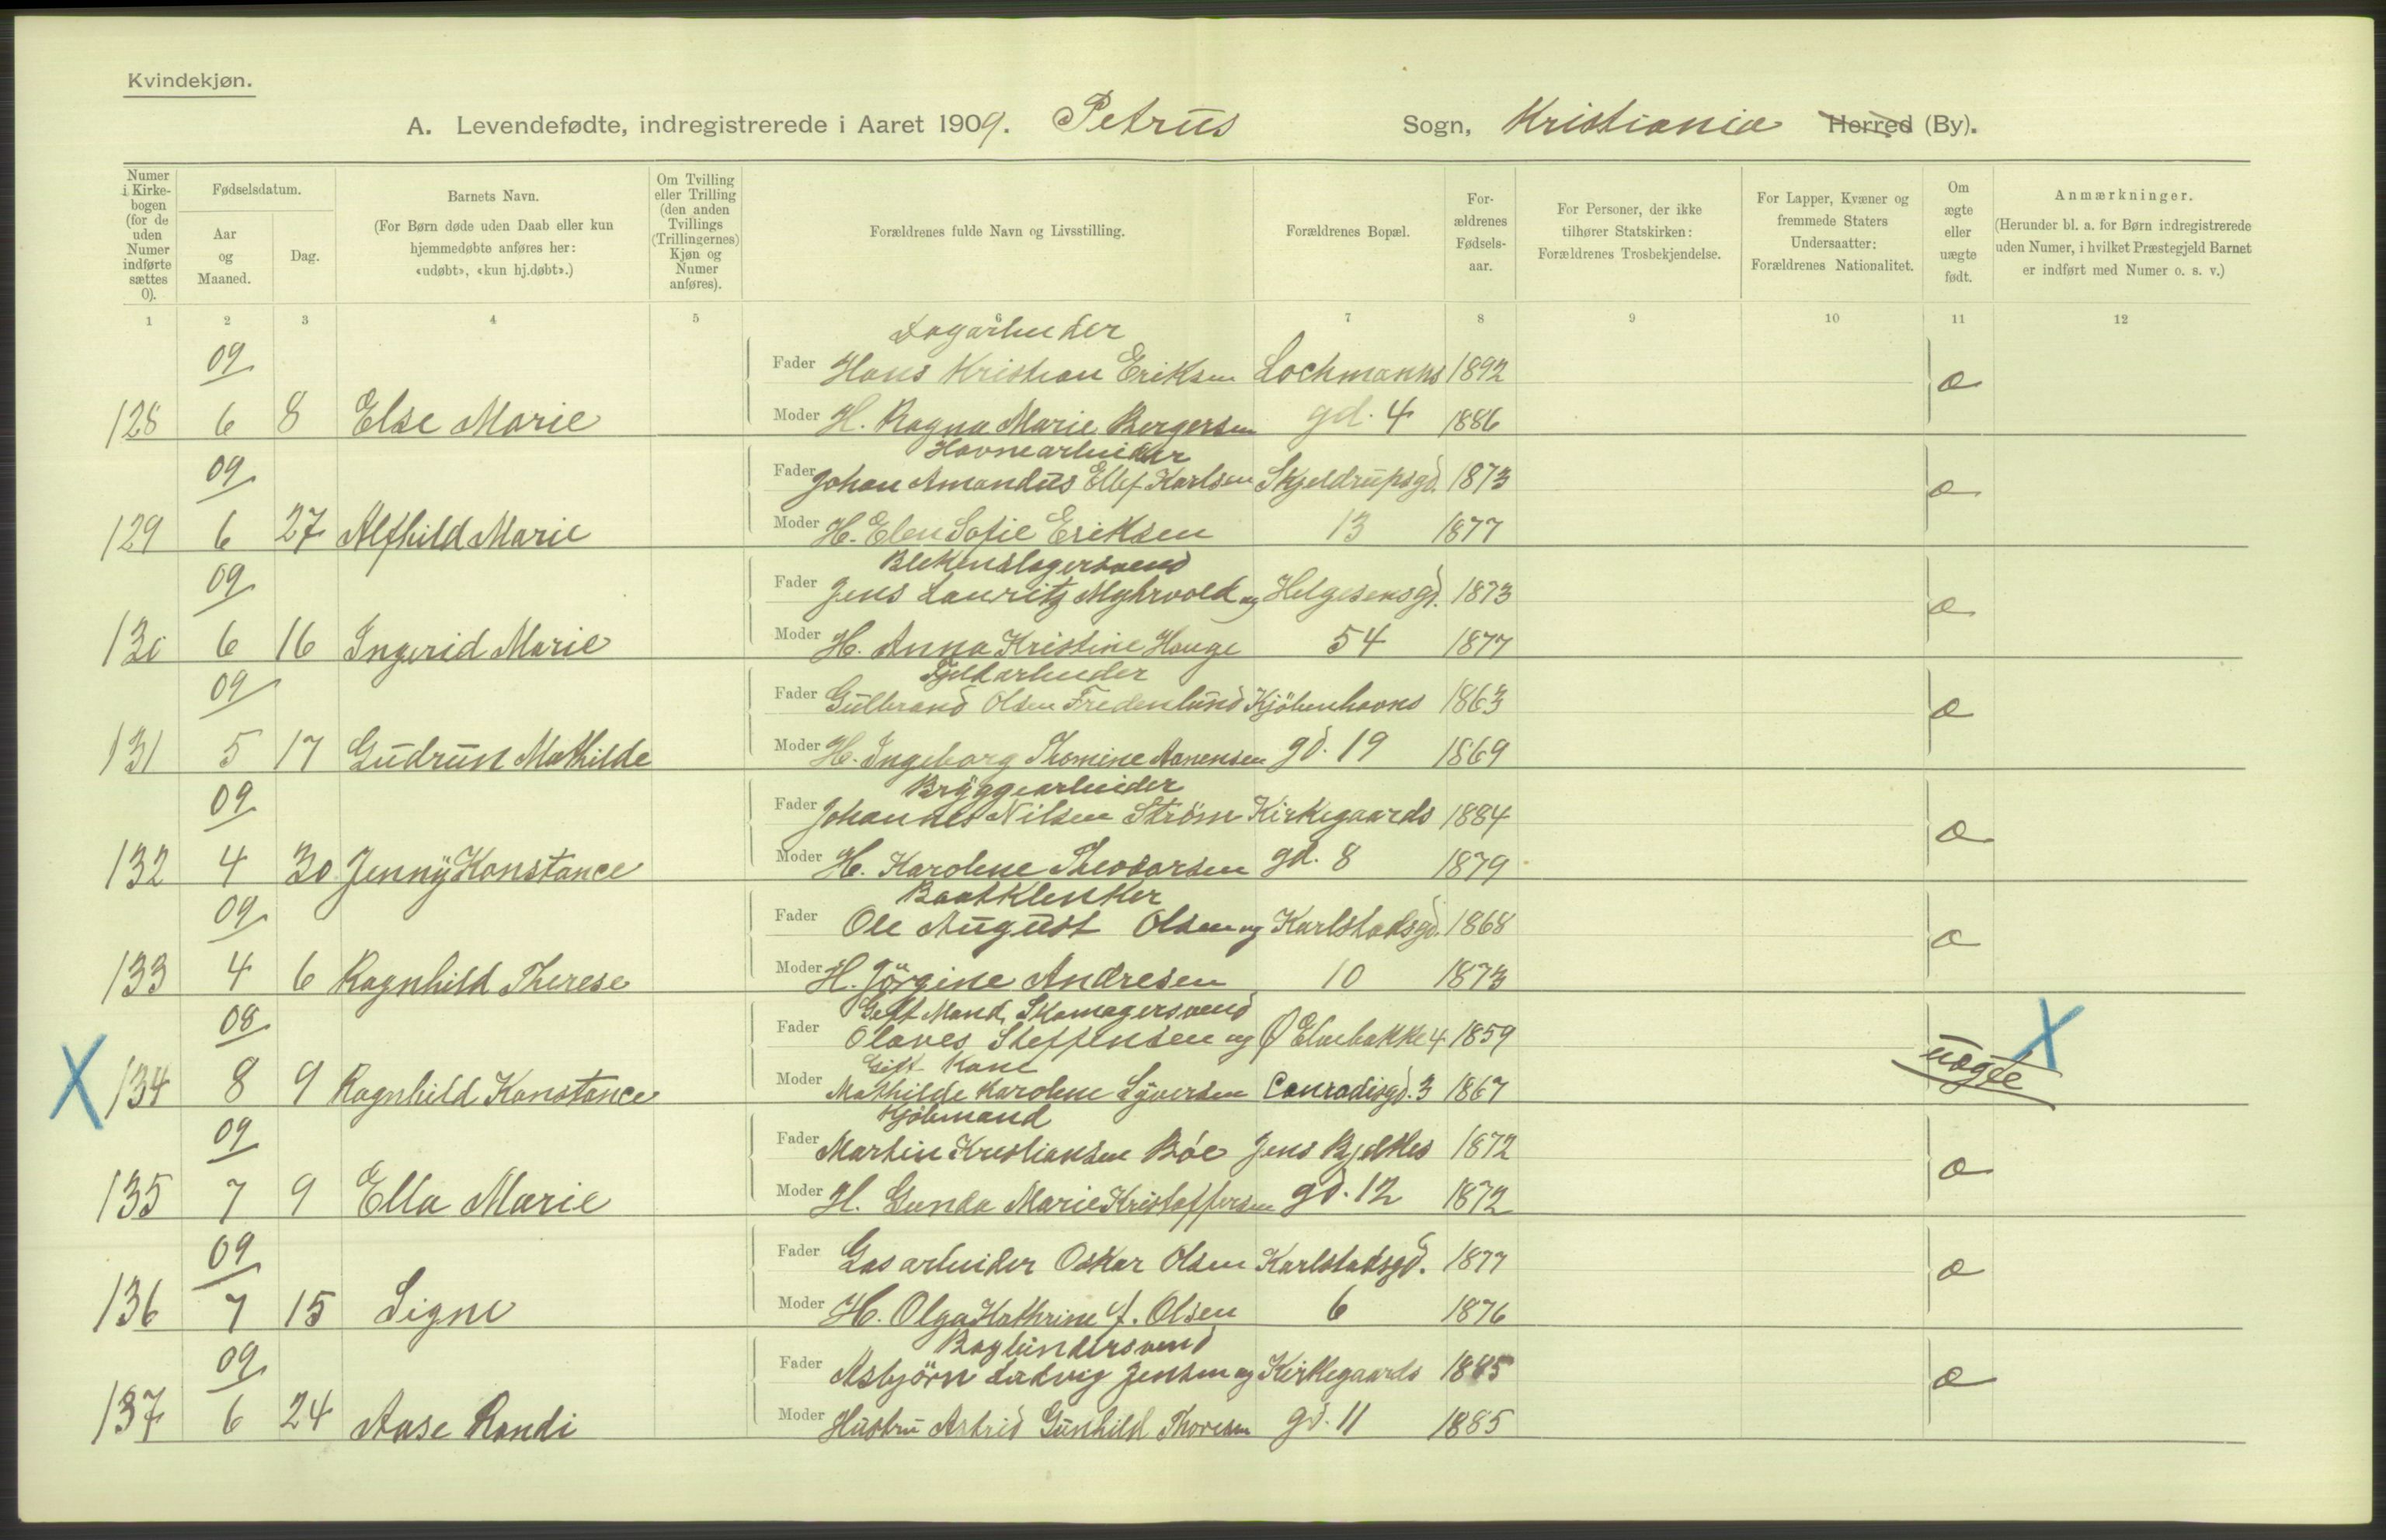 Kvindekjøn.
A. Levendefødte, indregistrerede i Aaret 1909. Petrus Sogn, Kristiania Herred (By).
Numer i Kirke-bogen (for de uden Numer indførte sættes 0).
Fødselsdatum.
Aar og Maaned.
Dag.
Barnets Navn.
(For Børn døde uden Daab eller kun hjemmedøbte anføres her: «udøbt», «kun hj.døbt».)
Om Tvilling eller Trilling (den anden Tvillings (Trillingernes) Kjøn og Numer anføres).
Forældrenes fulde Navn og Livsstilling.
Forældrenes Bopæl.
For-ældrenes Fødsels-aar.
For Personer, der ikke tilhører Statskirken: Forældrenes Trosbekjendelse.
For Lapper, Kvæner og fremmede Staters Undersaatter: Forældrenes Nationalitet.
Om ægte eller uægte født.
Anmærkninger.
(Herunder bl. a. for Børn indregistrerede uden Numer, i hvilket Præstegjeld Barnet er indført med Numer o. s. v.)
1 2 3 4 5 6 7 8 9 10 11 12
Dagarbeider
09 Fader Hans Kristian Eriksen Lochmanns 1892 æ
128 6 8 Else Marie Moder H. Ragna Marie Bergersen gd. 4 1886
Havnearbeider
09 Fader Johan Amandus Ellef Karlsen Skjeldrupsgd. 1873 æ
129 6 27 Alfhild Marie Moder H. Elen Sofie Eriksen 13 1877
Blikkenslagersvend
09 Fader Jens Lauritz Myhrvold og Helgesensgd. 1873 æ
130 6 16 Ingerid Marie Moder H. Anna Kristine Hauge 54 1877
Fjeldarbeider
09 Fader Gulbrand Olsen Fredenlund Kjöbenhavns 1863 æ
131 5 17 Gudrun Mathilde Moder H. Ingeborg Thomine Aanensen gd. 19 1869
Bryggearbeider
09 Fader Johannes Nilsen Ström Kirkegaards 1884 æ
132 4 30 Jenny Konstance Moder H. Karoline Theodorsen gd. 8 1879
Baatklinker
09 Fader Ole August Olsen og Karlstadsgd. 1868 æ
133 4 6 Ragnhild Therese Moder H. Jörgine Andresen 10 1873
Gift Mand, Skomagersvend
08 Fader Olaves Steffensen og Ø Elvebakke 4 1859 X
Gift Kone
X 134 8 9 Ragnhild Konstance Moder Mathilde Karoline Syversen Conradisgd. 3 1867 uægte
Kjöbmand
09 Fader Martin Kristiansen Bóe Jens Bjelkes 1872 æ
135 7 9 Ella Marie Moder H. Gunda Marie Kristoffersen gd. 12 1872
09 Fader Gasarbeider Oskar Olsen Karlstadsgd. 1877 æ
136 7 15 Signe Moder H. Olga Kathrine f. Olsen 6 1876
Bogbindersvend
09 Fader Asbjörn Ludvig Jensen og Kirkegaards 1885 æ
137 6 24 Aase Randi Moder Hustru Astrid Gunhild Thoresen gd. 11 1885